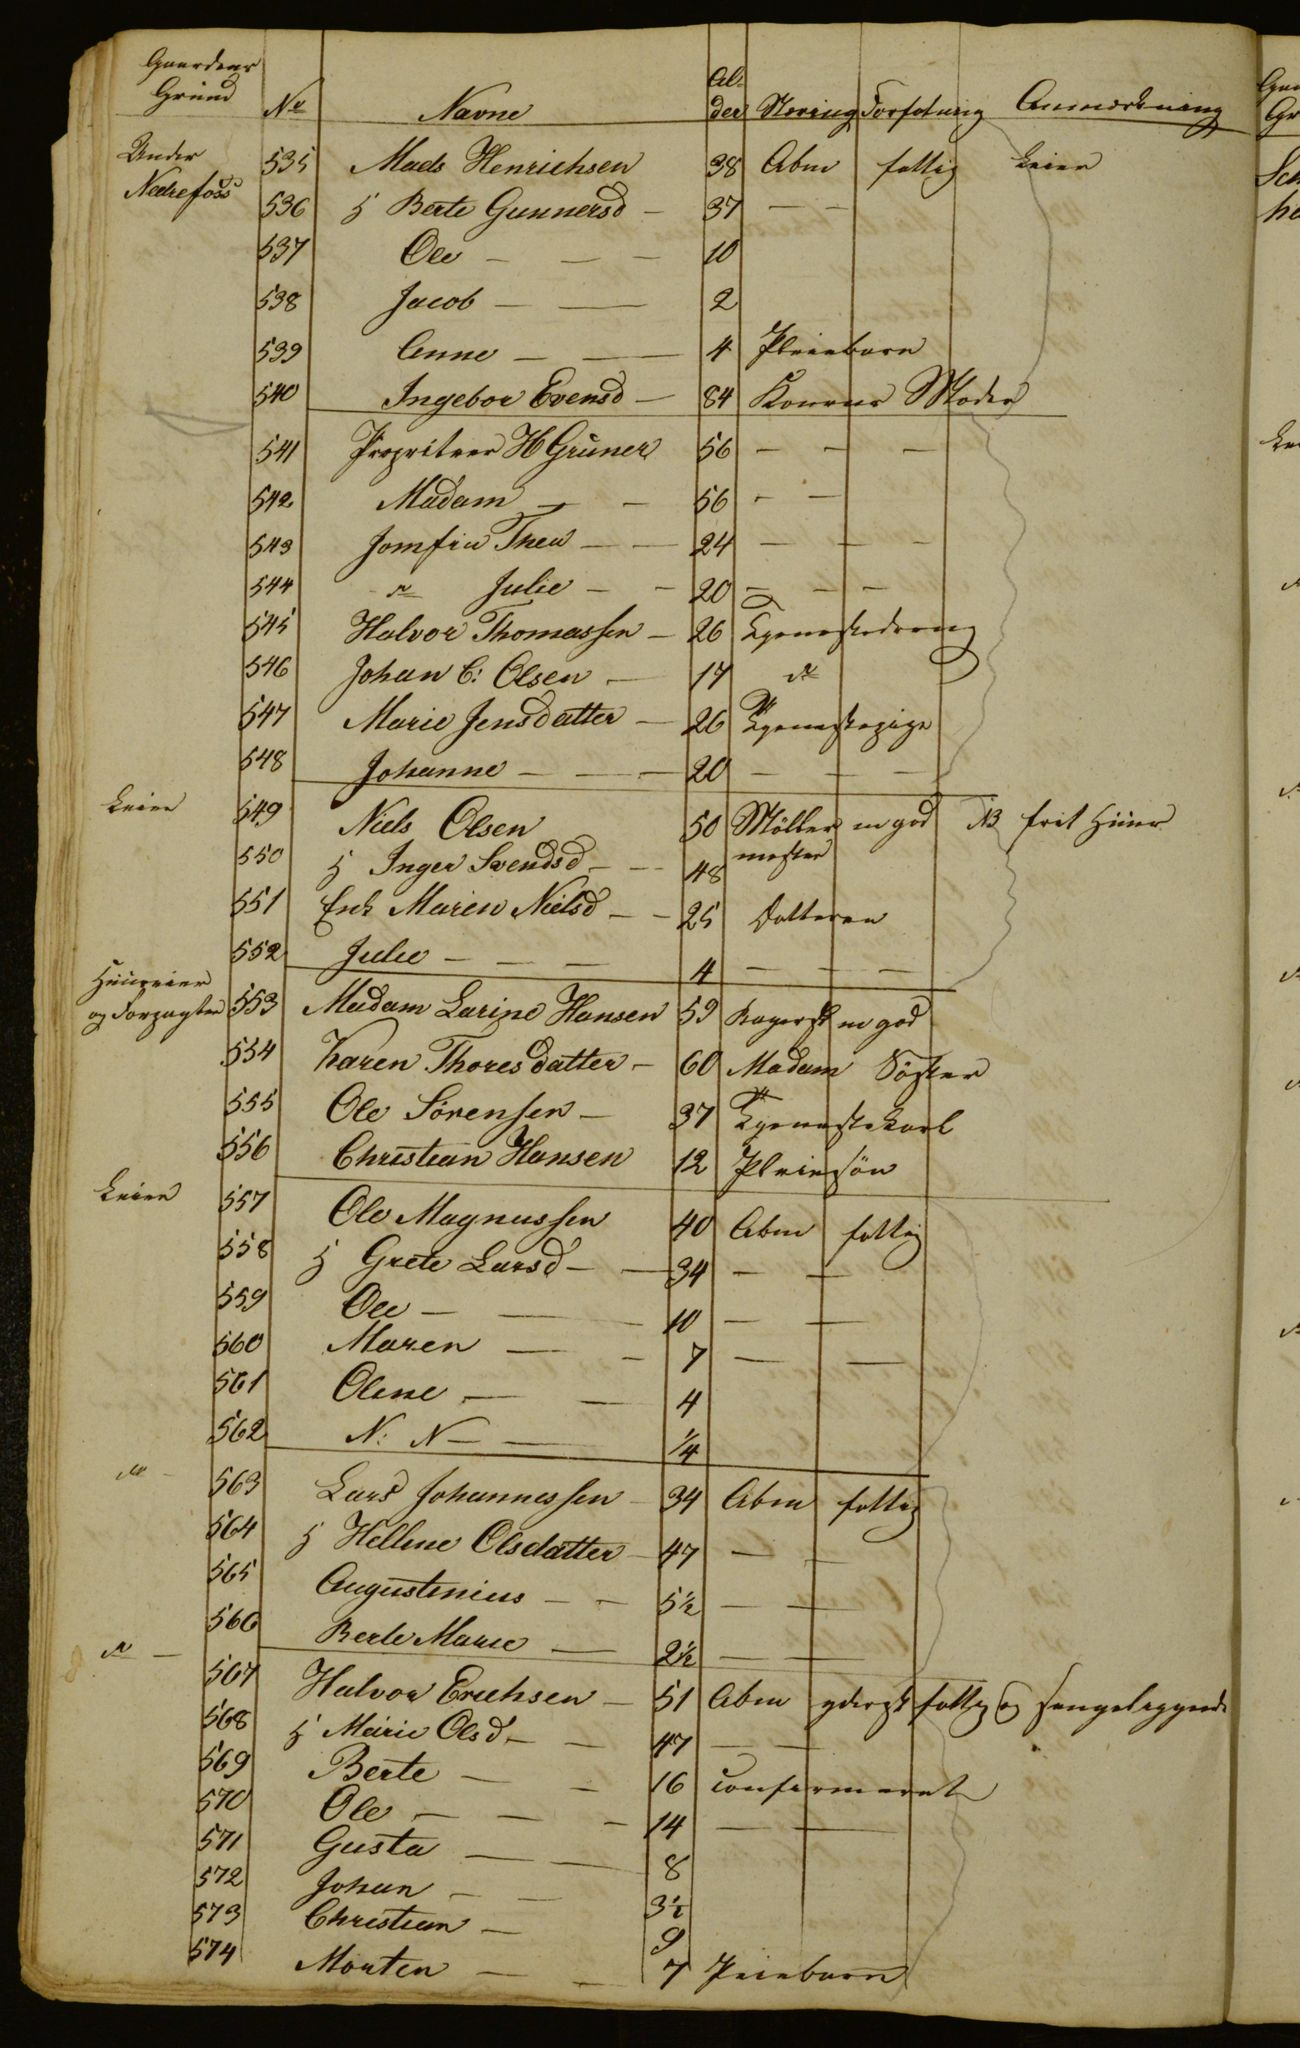 Gaardens Grund No Navne Alder Næring Forfatning Anmærkning
Under Nedrefoss 535 Mads Henrichsen 38 Abm fattig Leier
536 H Berte Gunnersd - 37 - -
537 Ole - - - 10
538 Jacob - - 2
539 Anne - - 4 Pleiebarn
540 Ingebor Evensd - 84 Konens Moder
541 Propritær H Grüner 56 - - -
542 Madam - - 56 - -
543 Jomfru Thea - - 24 - - -
544 " Julie - - 20 - - -
545 Halvor Thomassen - 26 Tjenestedreng
546 Johan C: Olsen - 17 "
547 Marie Jensdatter - 26 Tjenestepige
548 Johanne - - - 20 - - -
Leier 549 Niels Olsen 50 Möller mester m god NB frit Huus
550 H Inger Svendsd - - 48
551 Enk Maren Nielsd - - 25 Datteren
552 Julie - - - 4 - - -
Huuseier og Forpagter 553 Madam Larine Hansen 59 Bagersk m god
554 Karen Thoresdatter - 60 Madam Söster
555 Ole Sörensen - 37 Tjenestekarl
556 Christian Hansen 12 Pleiesön
Leier 557 Ole Magnussen 40 Abm fattig
558 H Grete Larsd - - 34 - -
559 Ole - - - 10 - -
560 Maren - - 7 - -
561 Olene - - 4
562 N: N - - 1/4
" - 563 Lars Johannessen - 34 Abm fattig
564 H Hellene Olsdatter - 47 - -
565 Augustinius - - 5 1/2 - -
566 Berte Marie - 2 1/2 - -
" - 567 Halvor Erichsen - 51 Abm yderst fattig og sengeliggende
568 H Marie Olsd - - 47 - -
569 Berte - - 16 confirmeret
570 Ole - - - 14 - -
571 Gusta - - 8
572 Johan - - 3 1/2
573 Christian - 9
574 Morten - - 7 Pleiebarn